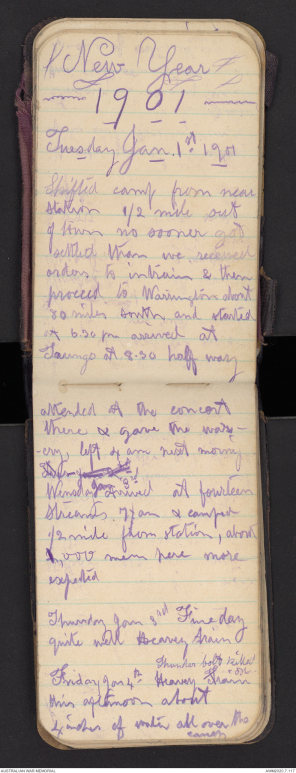 New Year
1901
Tuesday Jan. 1st 1901
Shifted camp from near
station 1/2 mile out
of town no sooner got
settled than we received
orders to intrain & then
proceed to Warrington about
80 miles South, and started
at 6.30 pm arrived at
Taungs at 8.30 half way
attended at the concert
there & gave the war-
-cry, left 4 am next morning
Jan 2nd
Wensday Arrived at fourteen
Streams, 7 am & camped
1/2 mile from station, about
1,000 men here more
expected
Thursday Jan 3rd Fine day
quite well Heavey train
Thunder bolt killed
Friday Jan 4th Heavey Train
this afternoon about
4 inches of water all over the
camp
AUSTRALIAN WAR MEMORIAL